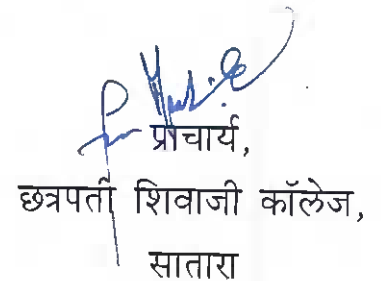 प्राचार्य,
छत्रपती शिवाजी कॉलेज,
सातारा